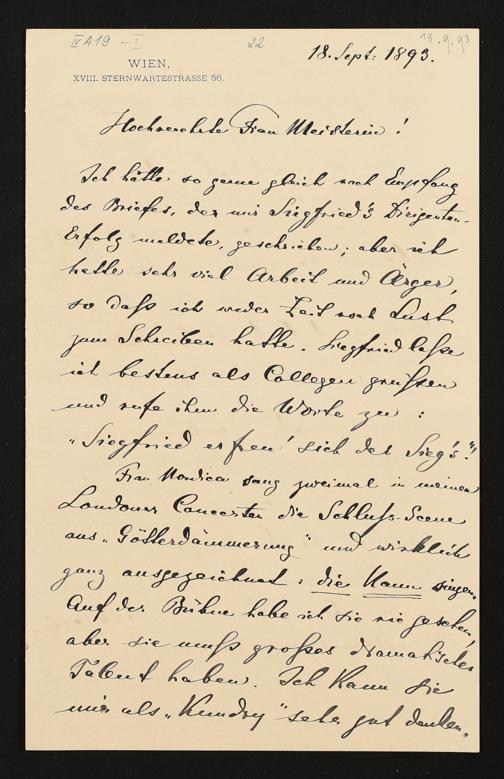 IV A 19 - I
22
18.9.93
WIEN,
XVIII. STERNWARTESTRASSE 56.
18. Sept: 1893.
Hochverehrte Frau Meisterin!
Ich hätte so gerne gleich nach Empfang
des Briefes, der mir Siegfried's Dirigenten-
Erfolg meldete, geschrieben; aber ich
hatte sehr viel Arbeit und Ärger,
so daß ich weder Zeit noch Lust
zum Schreiben hatte. Siegfried lasse
ich bestens als Collegen grüßen
und rufe ihm die Worte zu:
„Siegfried erfreu' sich des Sieg's!"
Frau Nordica sang zweimal in meinen
Londoner Concerten die Schluß-Scene
aus „Götterdämmerung" und wirklich
ganz ausgezeichnet: die kann singen.
Auf der Bühne habe ich sie nie gesehen,
aber sie muß großes dramatisches
Talent haben. Ich kann sie
mir als „Kundry" sehr gut denken.